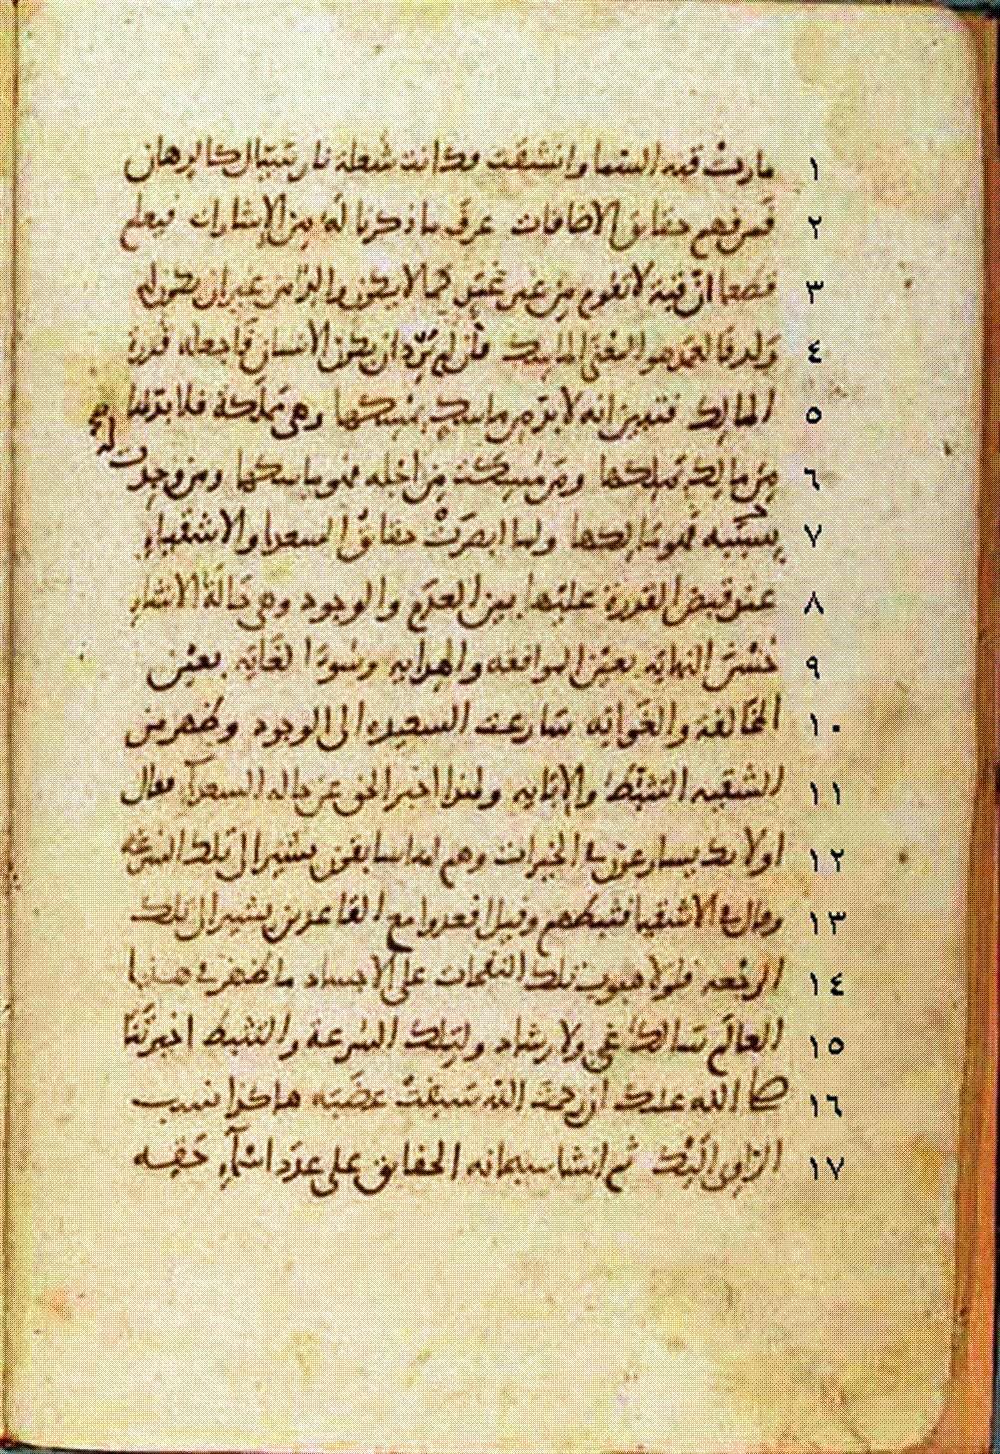 مارت قبة السما وانشقت فكانت شعلة نار سيال كالدهان ١
فمن فهم حقائق الاضافات عرف ما ذكرنا له من الإشارات فيعلم ٢
قطعا ان قبة لا تقوم من غير عمد كما لا يكون والد من غير ان يكون له ٣
ولد فالعمد هو المعنى الماسك فان لم ترد ان يكون الانسان فاجعله قدرة ٤
المالك فتبين انه لا بد من ماسك يمسكها وهي مملكة فلا بد لها ٥
من مالك يملكها ومن مسكت من اجله فهو ماسكها ومن وجدت له ٦
بسببه فهو مالكها ولما ابصرت حقائق السعدا والاشقياء ٧
عند قبض القدرة عليها بين العدم والوجود وهي حالة الانشاء ٨
حسن النهاية بعين الموافقه والهدايه وسوء الغايه بعين ٩
المخالفة والغوايه سارعت السعيده الى الوجود وظهر من ١٠
الشقيه التثبط والإبايه ولهذا اخبر الحق عن حاله السعدآ فقال ١١
اولايك يسارعون في الخيرات وهم لها سابقون يشير الى تلك السرعه ١٢
وقال في الاشقيا فثبطهم وقيل اقعدوا مع القاعدين يشير الى تلك ١٣
الرجعه فلولا هبوب تلك النفحات على الاجساد ما ظهر في هذا ١٤
العالم سالك غي ولا رشاد ولتلك السرعة والتثبط اخبرتنا ١٥
صلى الله عليك ان رحمت الله سبقت غضبه هاكذا نسب ١٦
الراوي اليك ثم انشا سبحانه الحقائق على عدد اسمآء حقه ١٧